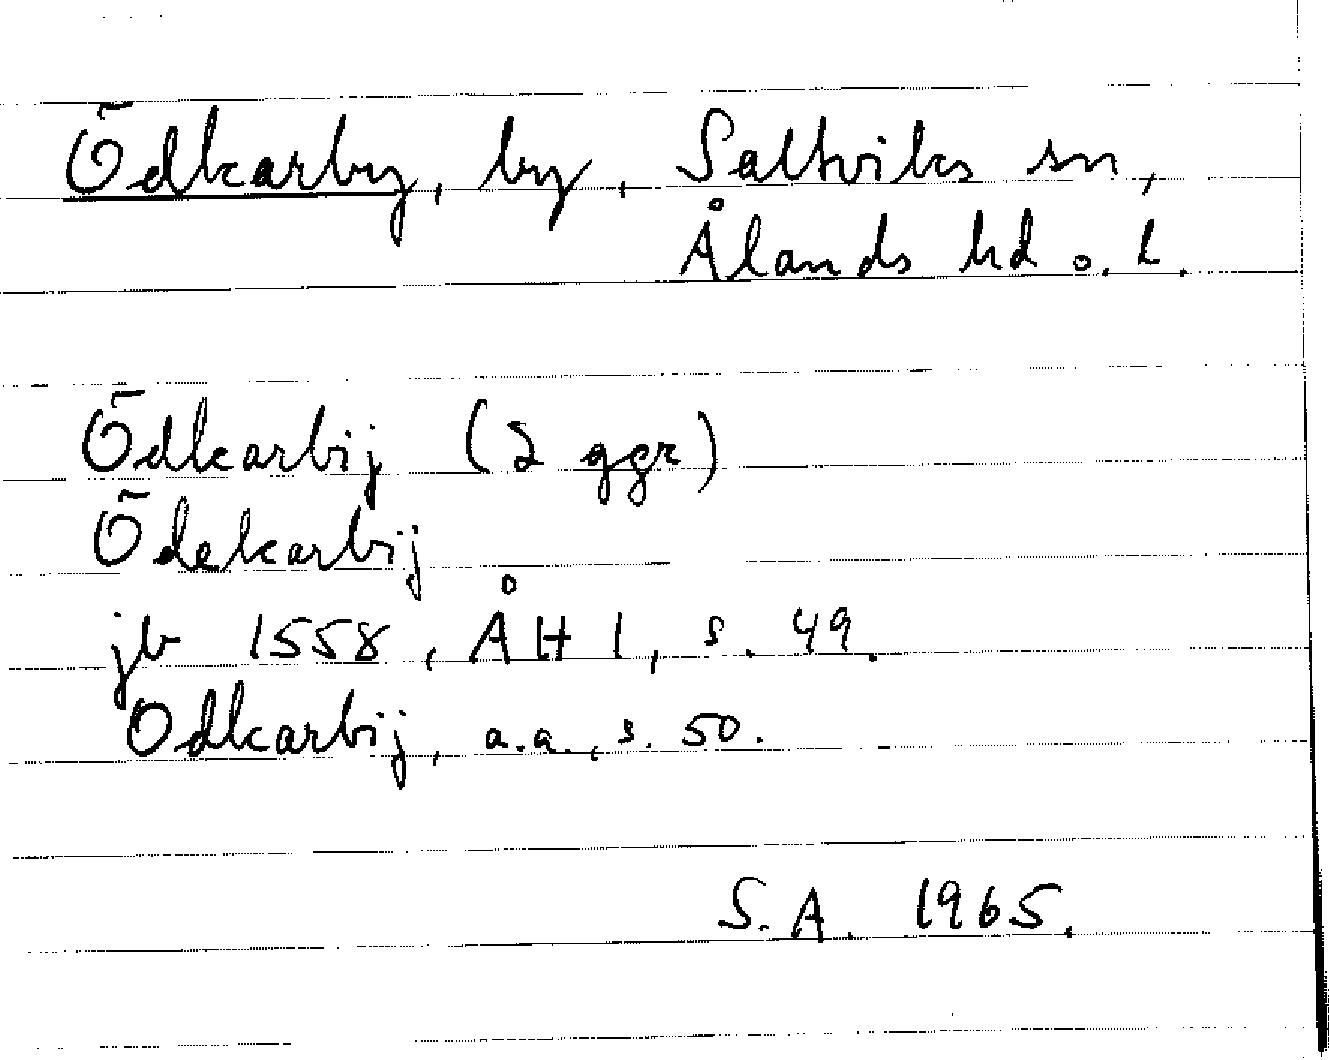 Ödkarby, by, Saltviks sn,
Ålands hd o. L.
Ödkarbij (2 ggr)
Ödekarbij
jb 1558, ÅH I, s. 49.
Odkarbij, a.a., s. 50.
S.A. 1965.